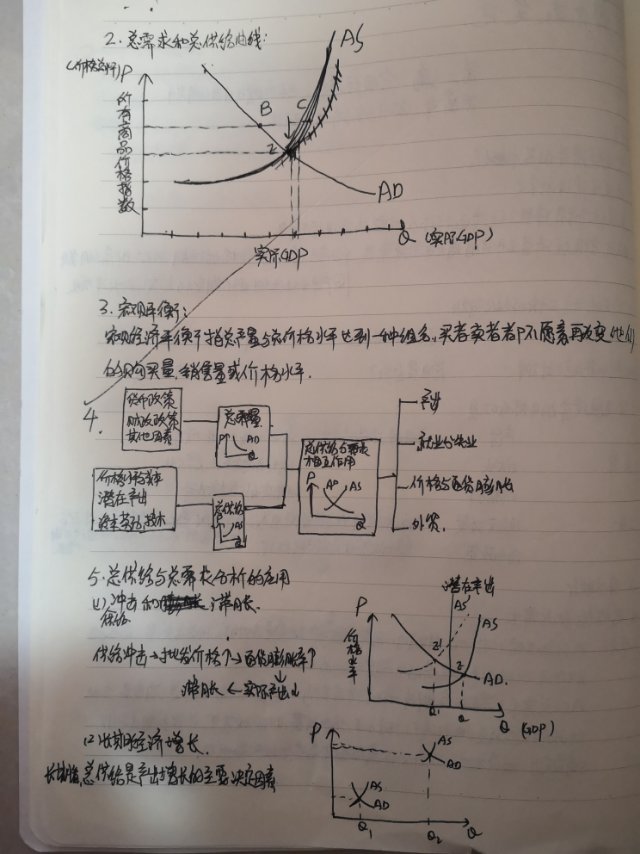 2.总需求和总供给曲线:
(价格总水平)P
AS
所有商品价格指数
B
C
Z
AD
Q (实际GDP)
实际GDP
3.宏观平衡:
宏观经济平衡于指总产量与总价格水平达到一种组合,买者卖者都不愿意再改变他们
的购买量、销售量或价格水平.
4.
货币政策
财政政策
其他因素
总需量
P
AD
Q
总供给与需求
相互作用
P
AD
AS
Q
价格与成本
潜在产出
资本劳动,技术
总供给
P
AS
Q
产出
就业与失业
价格与通货膨胀
外贸
5.总供给与总需求分析的应用
(1)供给冲击和滞胀.
供给冲击→批发价格↑→通货膨胀率↑
滞胀←实际产出↓
潜在产出
P
价格水平
AS'
AS
Z'
Z
AD.
Q'
Q
Q (GDP)
(2)长期经济增长.
长期增,总供给是产出增长的主要决定因素
P
AS
AD
AS
AD
Q1
Q2
Q